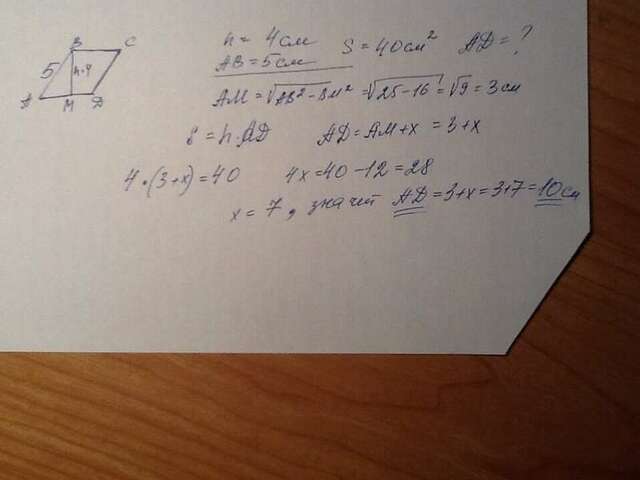 B C
5 h=4
A M D
h = 4 см S = 40 см² AD = ?
AB = 5 см
AM = √AB² - BM² = √25 - 16 = √9 = 3 см
S = h·AD AD = AM + x = 3 + x
4·(3+x) = 40 4x = 40 - 12 = 28
x = 7, значит AD = 3+x = 3+7 = 10 см